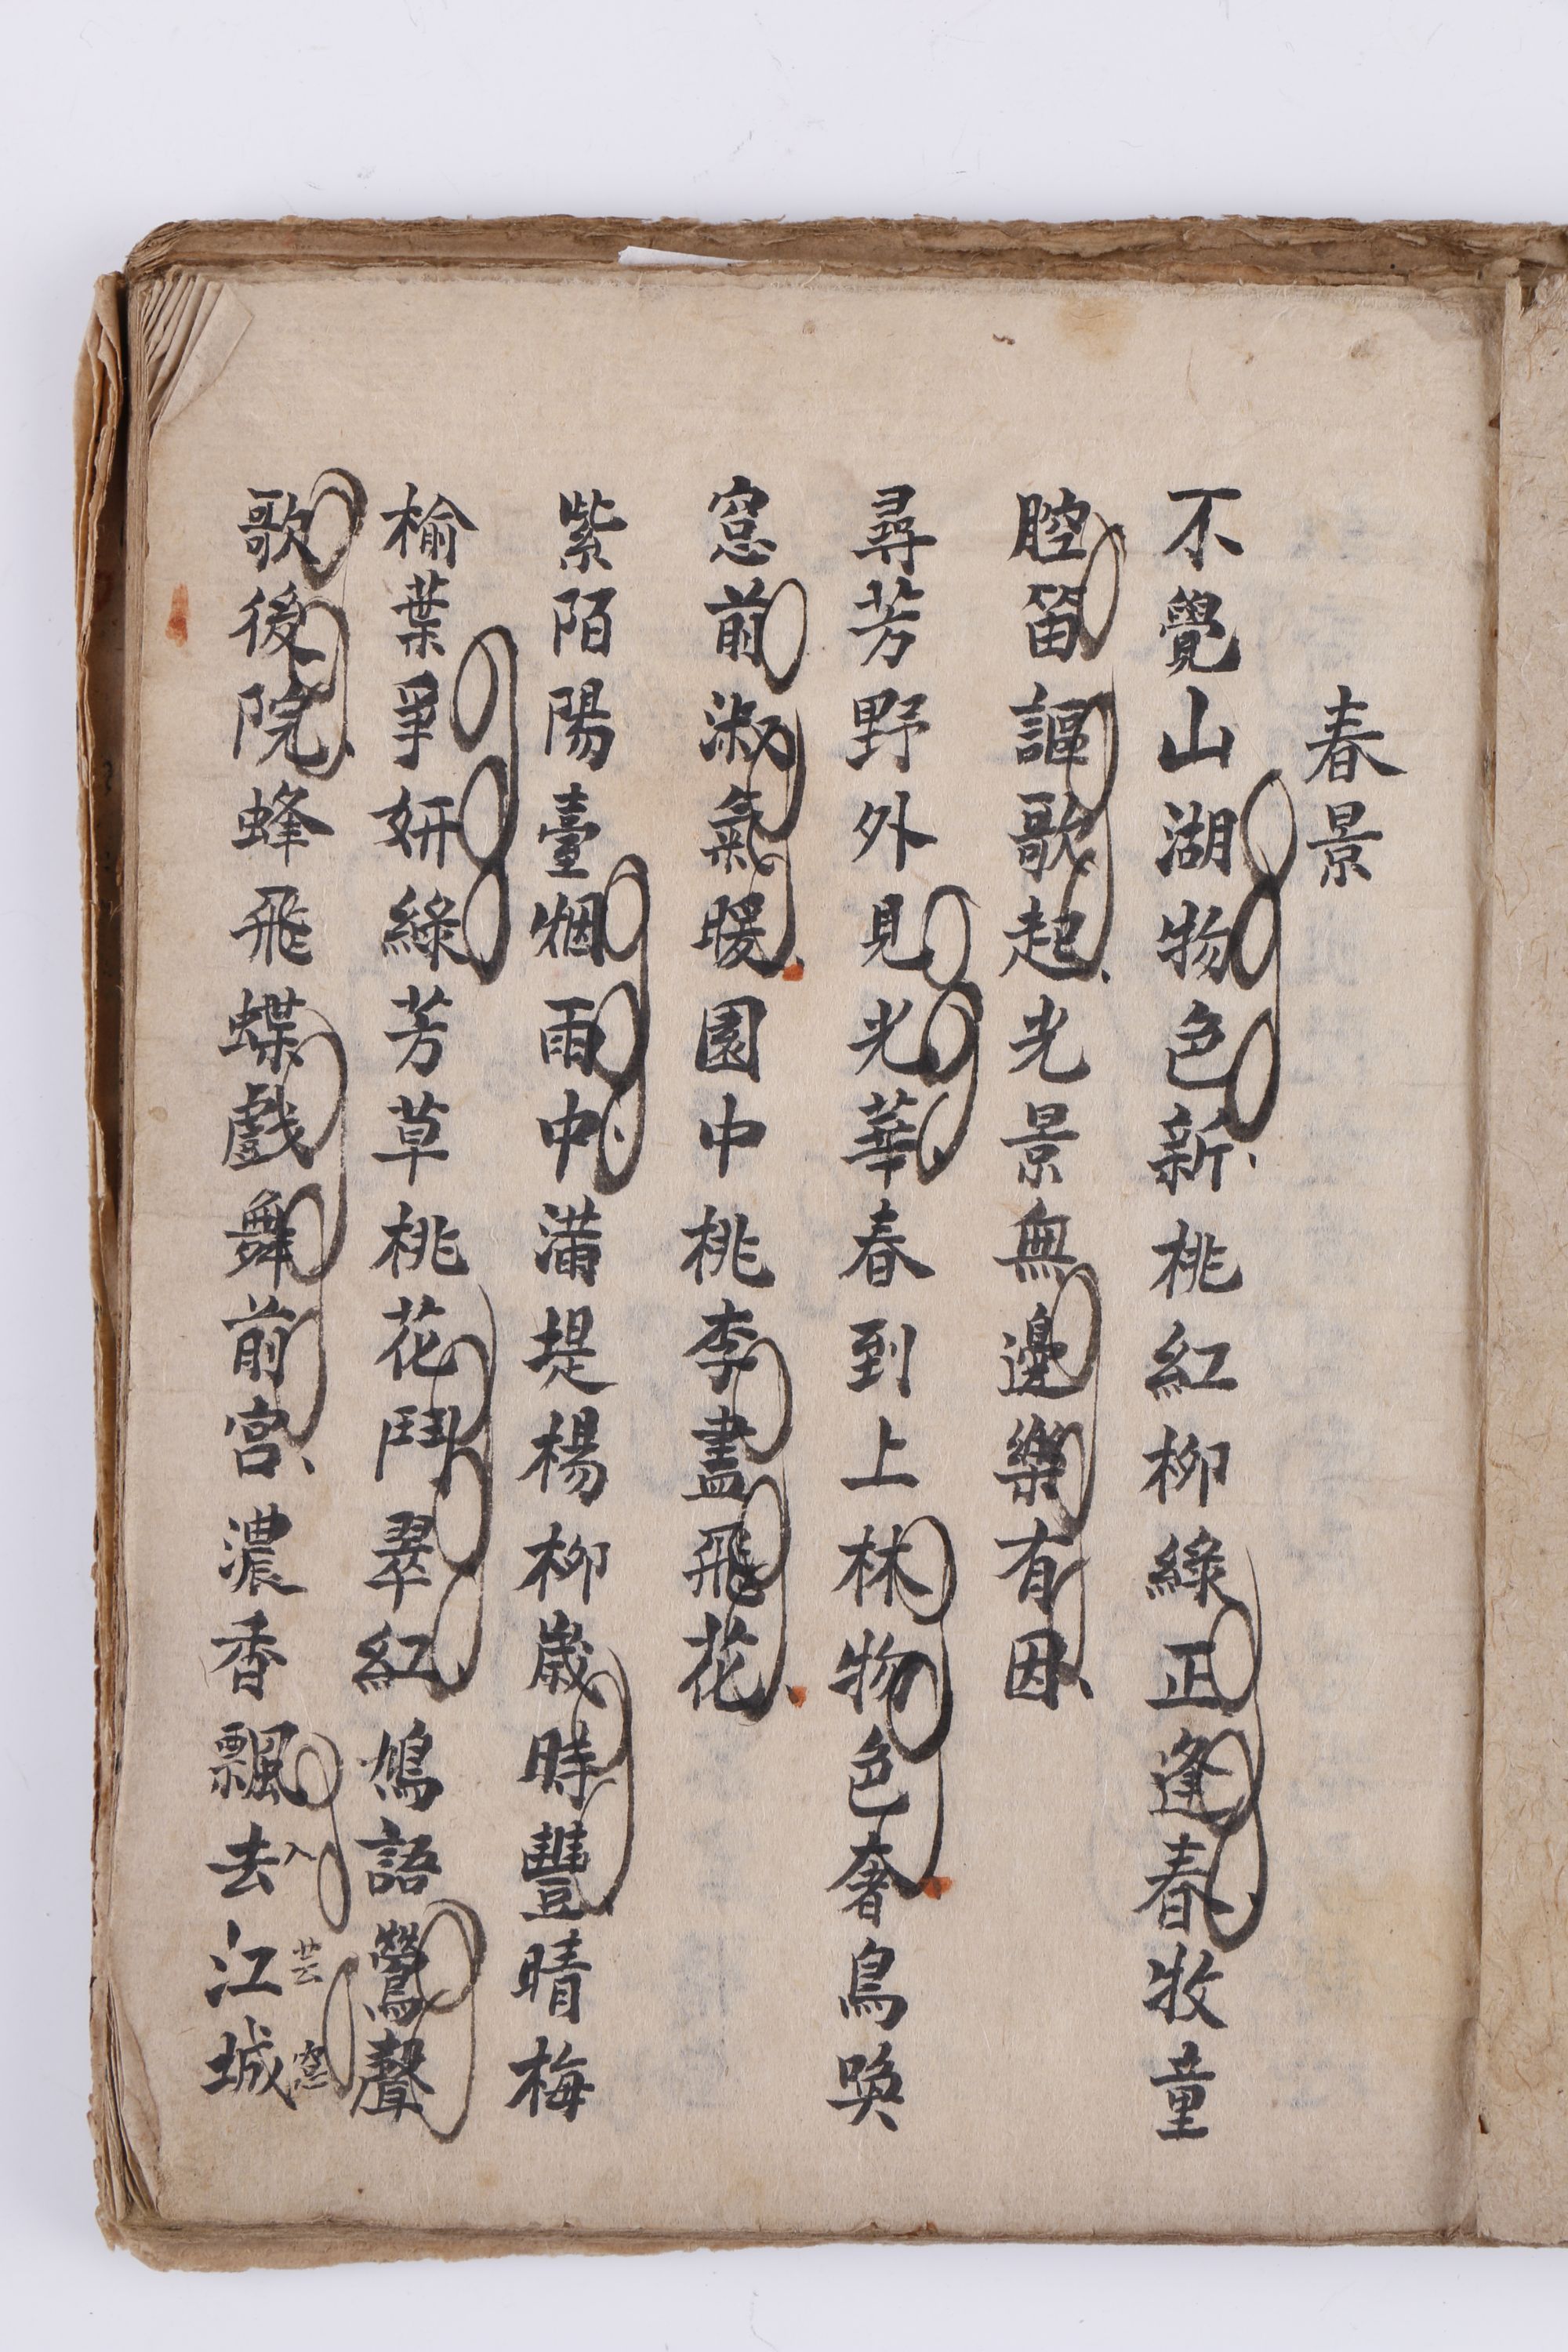 春景
不覺山湖物色新桃紅柳綠正逢春牧童
腔笛謳歌起光景無邊樂有因
尋芳野外見光華春到上林物色奢鳥喚
窓前淑氣暖園中桃李盡飛花
紫陌陽臺烟雨中滿堤楊柳歲時豐晴梅
榆葉爭妍綠芳草桃花鬥翠紅鳩語鶯聲
歌後院蜂飛蝶戲舞前宮濃香飄去江城
入芸窓